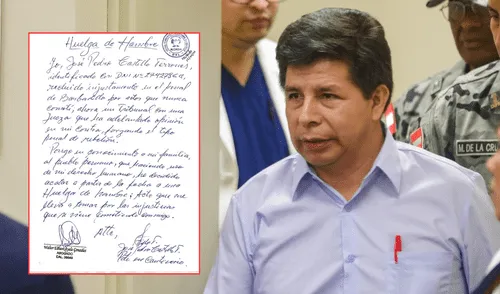 Huelga de Hambre
Yo, José Pedro Castillo Terrones,
identificado con DNI Nº
recluido injustamente en el penal
de Barbadillo por
cometí, ahora un Tribunal con una
jueza que ha adelantado opinión
en mi contra, forzando el tipo
penal de rebelión.
Pongo en conocimiento a mi familia,
al pueblo peruano, que haciendo uso
de mi derecho humano, he decidido
acatar a partir de la fecha a una
Huelga de Hambre; acto que me
lleva a tomar por las injusticias
que se viene cometiendo conmigo.
Atte,
José Pedro Castillo T.
ABOGADO
M. DE LA CRU